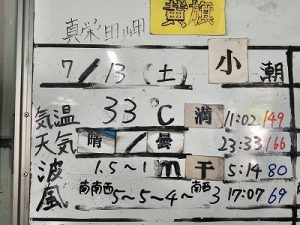 黄旗
真栄田岬
7/13(土) 小潮
気温 33℃ 満 11:02 149
天気 晴/曇 23:33 166
波 1.5~1m 干 5:14 80
風 南南西 5~5~4~南西 3 17:07 69